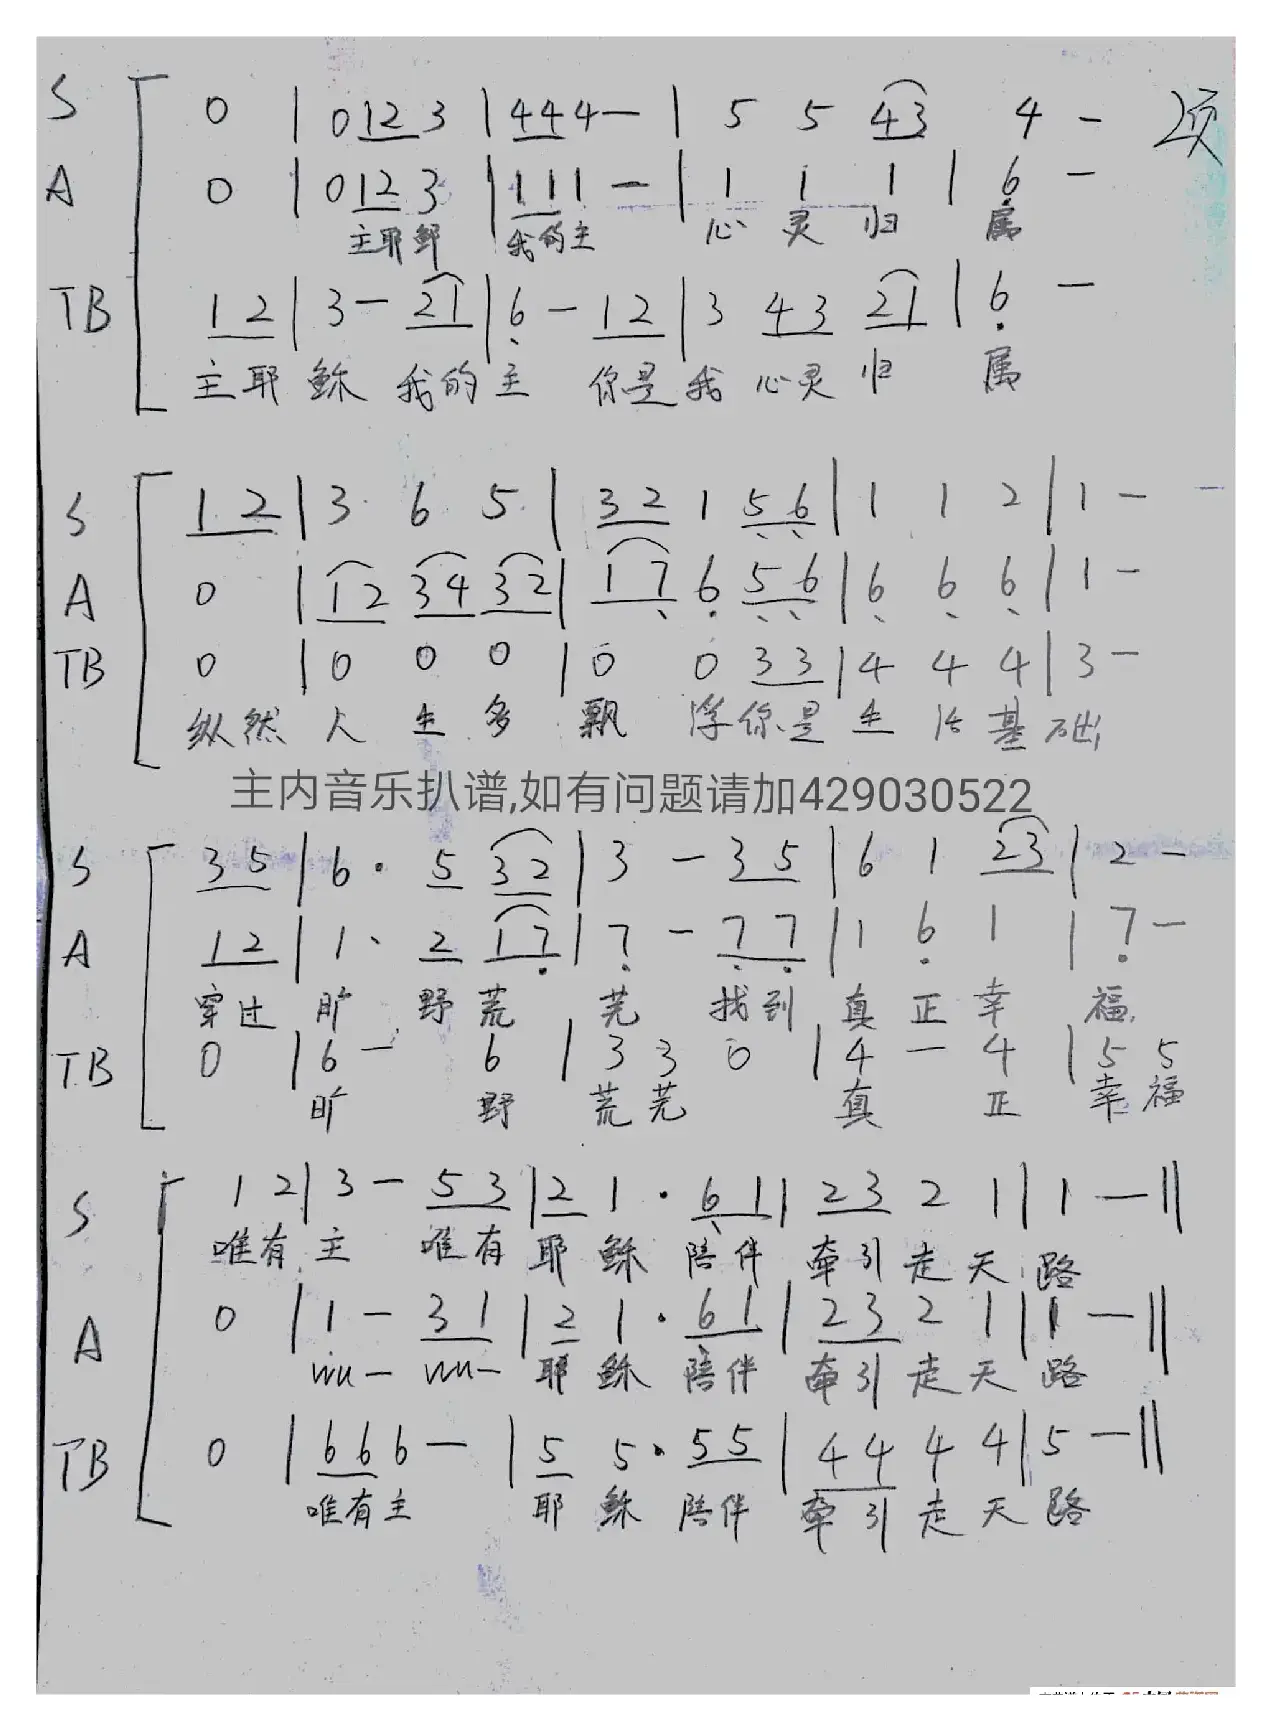 S 0 | 0 1 2 3 | 4 4 4 — | 5 5 4 3 4 —
A 0 | 0 1 2 3 | 1 1 1 — | 1 1 1 | 6 —
主耶稣 我的主 心 灵 归 属
TB 1 2 | 3 — 2 1 | 6 — 1 2 | 3 4 3 2 1 | 6 —
主耶稣 我的主 你是我 心灵 归 属
S 1 2 | 3 6 5 | 3 2 1 5 6 | 1 1 2 | 1 — —
A 0 | 1 2 3 4 3 2 | 1 7 6 5 6 | 6 6 6 | 1 —
TB 0 | 0 0 0 | 0 0 3 3 | 4 4 4 | 3 —
纵然 人 生 多 飘 浮 你是 生 活 基 础
主内音乐扒谱,如有问题请加429030522
S 3 5 | 6 · 5 3 2 | 3 — 3 5 | 6 1 2 3 | 2 —
A 1 2 | 1 · 2 1 7 | 7 — 7 7 | 1 6 1 | 7 —
穿过 旷 野 荒 芜 找到 真 正 幸 福
TB 0 | 6 — 6 | 3 3 0 | 4 — 4 | 5 5
旷 野 荒 芜 真 正 幸 福
S 1 2 | 3 — 5 3 | 2 1 · 6 1 | 2 3 2 1 | 1 — ‖
唯有 主 唯有 耶 稣 陪伴 牵引 走 天 路
A 0 | 1 — 3 1 | 2 1 · 6 1 | 2 3 2 1 | 1 — ‖
wu — wu — 耶 稣 陪伴 牵引 走 天 路
TB 0 | 6 6 6 — | 5 5 · 5 5 | 4 4 4 4 | 5 — ‖
唯有主 耶 稣 陪伴 牵 引 走 天 路